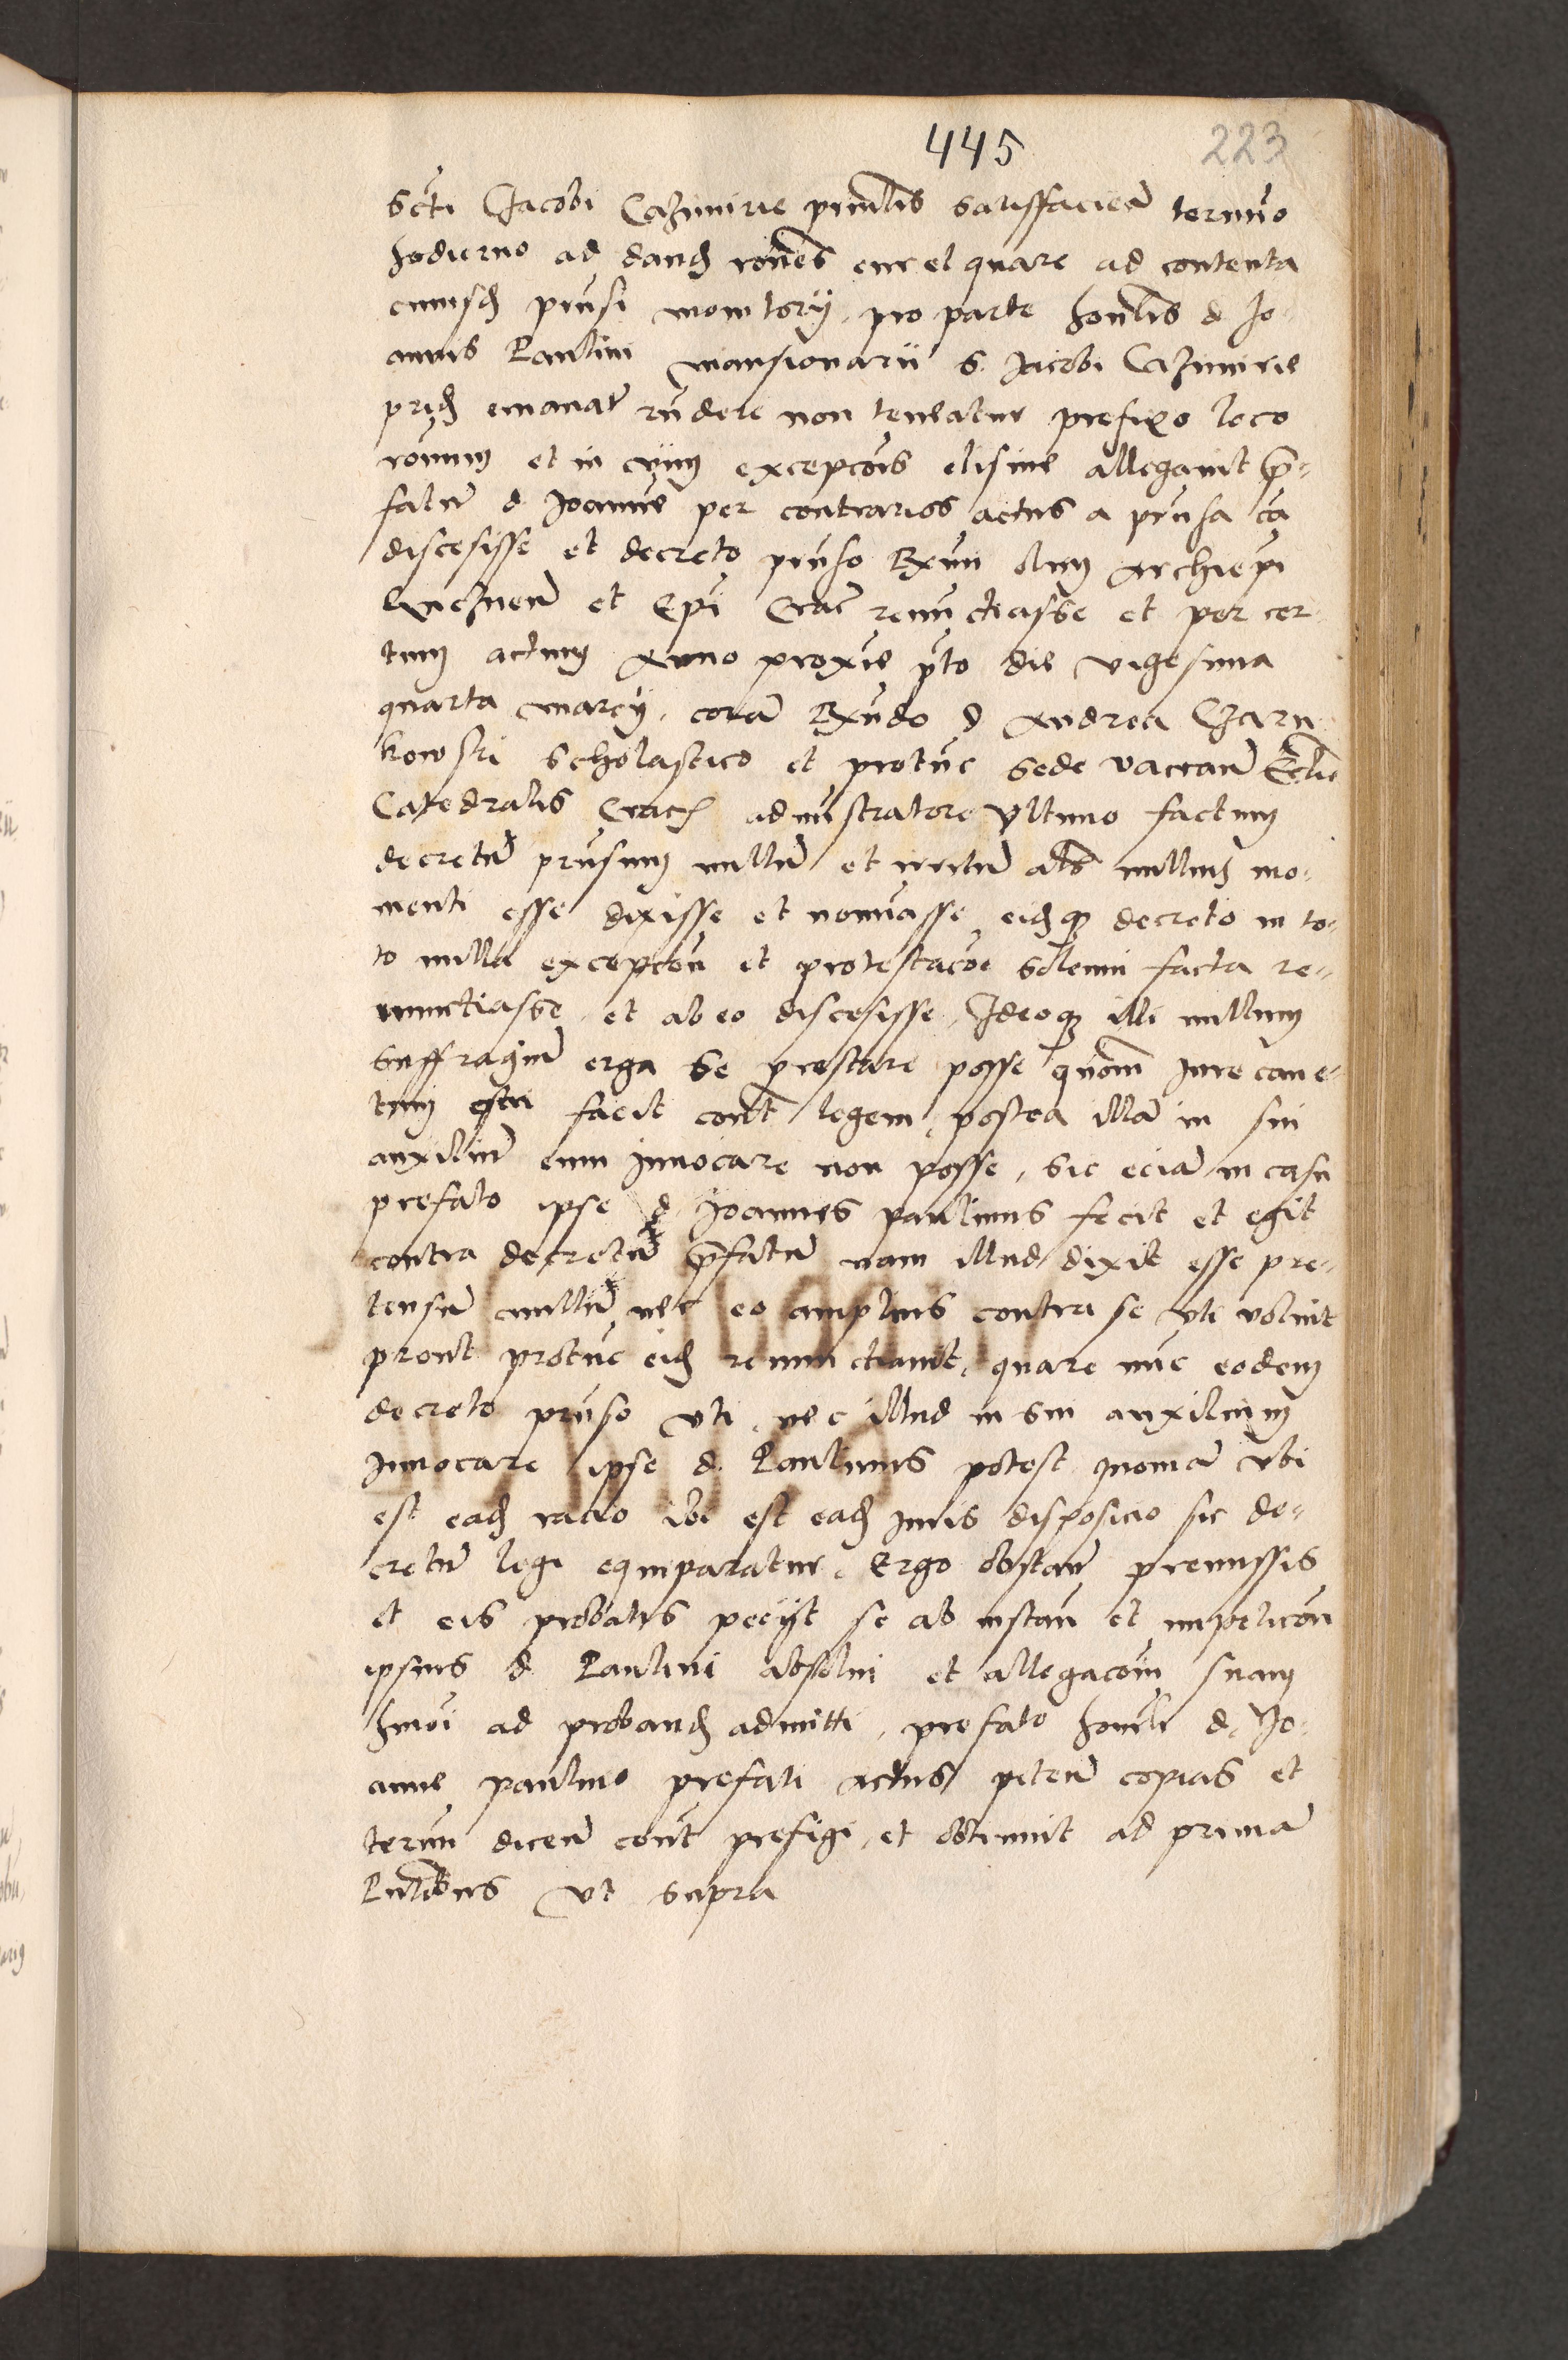 445 223
Scti Jacobi Cazimirie premlis satisfacien termino
hodierno ad dand rones cur et quare ad contenta
cuiusd prnsi monitorii, pro parte honlis d Jo-
annis Paulini mansionarii S. Jacobi Cazimirie
prid emanat rndere non teneatur prefixo loco
ronum et in vim excepcois elisive allegavit pre-
fatu d Joanne per contrarios actus a prnsa ca
discesisse et decreto prnso Rxmi olim Archiepi
Gneznen et Epi Crac renuctiasse et per cer-
tum actum Anno proxie pto die vigesima
quarta marcy, cora Rxndo d Andrea Czarn
kowski Scholastico et protuc Sede vacran Eclie
Catedralis Crac administratore Ultimo factum
decretu prnsum nullu et irritu als nullius mo-
menti esse dixisse et nomiasse eidq decreto in to-
to nulla excepcon et protestacoe solemni facta re-
nunctiasse, et ab eo discesisse, Ideoq illi nullum
suffragiu erga se prestare posse quom iure cave-
tum facit cont legem, postea illa in sui
auxiliu eum Invocare non posse, sic ecia in casu
prefato ipse d Joannes paulinus fecit et egit
contra decretu prefatu nam illud dixit esse pre-
tensu nullu, nec eo amplius contra se uti voluit
prout protuc eid renunctiavit, quare nuc eodem
decreto prnso uti, nec illud in sui auxilium
Invocare ipse d. Paulinus potest quonia ubi
est ead racio ibi est ead iuris disposicio sic de-
cretu legi equiparatur, Ergo obstan premissis
et eis probatis peciit se ab instan et impeticon
ipsius d Paulini absolvi et allegacoem suam
hmoi ad proband admitti, prefato honli d, Jo-
anne paulino prefati actus peten copias et
termin dicen cont prefigi, et obtinuit ad prima
Putibus ut supra